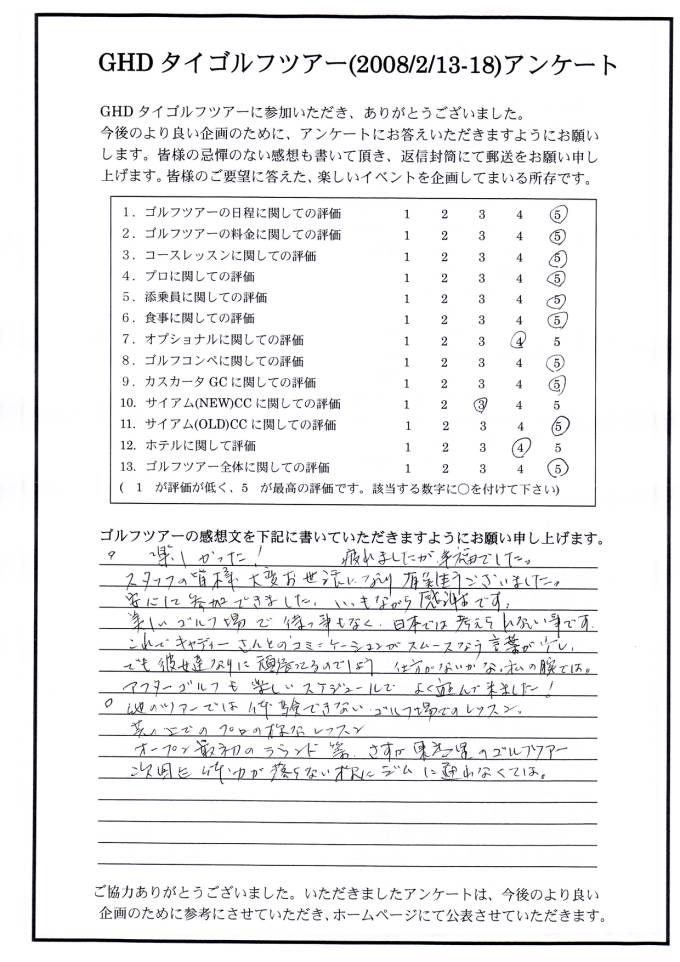 GHD タイゴルフツアー(2008/2/13-18)アンケート
GHD タイゴルフツアーに参加いただき、ありがとうございました。
今後のより良い企画のために、アンケートにお答えいただきますようにお願い
します。皆様の忌憚のない感想も書いて頂き、返信封筒にて郵送をお願い申し
上げます。皆様のご要望に答えた、楽しいイベントを企画してまいる所存です。
1．ゴルフツアーの日程に関しての評価 1 2 3 4 5
2．ゴルフツアーの料金に関しての評価 1 2 3 4 5
3．コースレッスンに関しての評価 1 2 3 4 5
4．プロに関しての評価 1 2 3 4 5
5．添乗員に関しての評価 1 2 3 4 5
6．食事に関しての評価 1 2 3 4 5
7．オプショナルに関しての評価 1 2 3 4 5
8．ゴルフコンペに関しての評価 1 2 3 4 5
9．カスカータ GC に関しての評価 1 2 3 4 5
10. サイアム(NEW)CC に関しての評価 1 2 3 4 5
11. サイアム(OLD)CC に関しての評価 1 2 3 4 5
12. ホテルに関して評価 1 2 3 4 5
13. ゴルフツアー全体に関しての評価 1 2 3 4 5
( 1 が評価が低く、5 が最高の評価です。該当する数字に○を付けて下さい)
ゴルフツアーの感想文を下記に書いていただきますようにお願い申し上げます。
○ 楽しかった! 疲れましたが幸福でした。
スタッフの皆様 大変お世話になり 有難うございました。
安心して参加できました。いつもながら感謝です。
美しいゴルフ場で 待つ事もなく、日本では考えられない事です。
これでキャディーさんとのコミニケーションがスムースなら 言葉が少し、
でも彼女達なりに頑張ってるのでしょう 仕方がないかな 私の腕では。
アフターゴルフも楽しいスケジュールで よく遊んで来ました!
○ 他のツアーでは体験できない ゴルフ場でのレッスン。
芝の上でのプロの レッスン
オープン最初のラウンド 等、さすが のゴルフツアー
次回も 体力が落ちない様にジムに通わなくては。
ご協力ありがとうございました。いただきましたアンケートは、今後のより良い
企画のために参考にさせていただき、ホームページにて公表させていただきます。